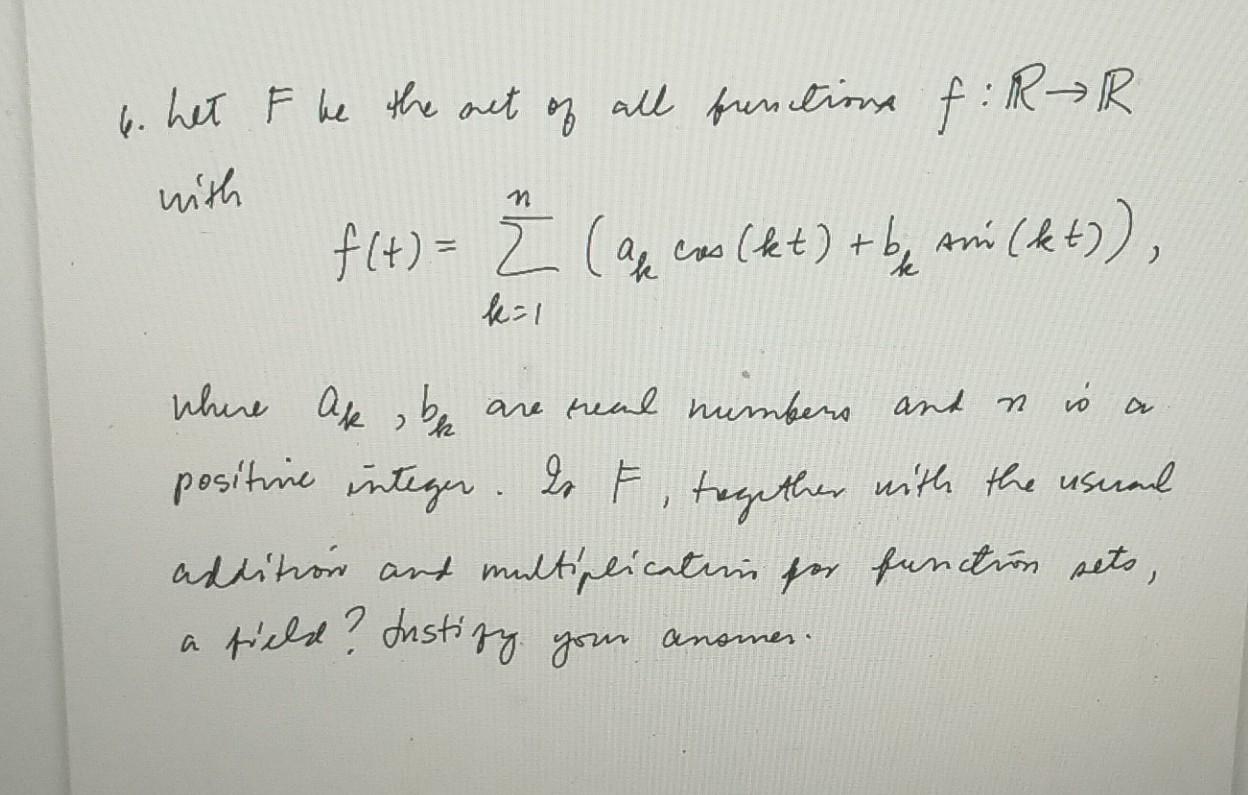 6. Let F be the set of all functions f : ℝ → ℝ
with
n
f(t) = Σ (a_k cos(kt) + b_k sin(kt)),
k=1
where a_k, b_k are real numbers and n is a
positive integer. Is F, together with the usual
addition and multiplication for function sets,
a field? Justify your answer.